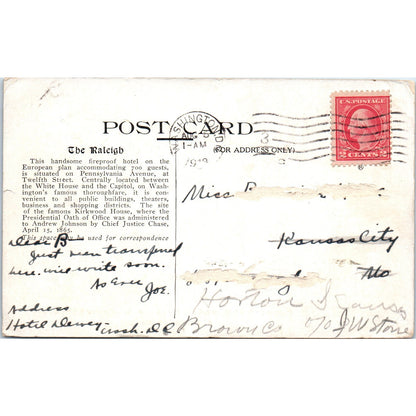 POST CARD
(FOR ADDRESS ONLY)
WASHINGTON D.C.
AUG
1-AM
U.S. POSTAGE
2 CENTS 2
The Raleigh
This handsome fireproof hotel on the
European plan accommodating 700 guests,
is situated on Pennsylvania Avenue, at
Twelfth Street. Centrally located between
the White House and the Capitol, on Wash-
ington's famous thoroughfare, it is con-
venient to all public buildings, theaters,
business and shopping districts. The site
of the famous Kirkwood House, where the
Presidential Oath of Office was administered
to Andrew Johnson by Chief Justice Chase,
April 15, 1865.
This space may be used for correspondence
Dear B
Just been transfered
here. will write soon.
As Ever
Joe.
Address
Hotel Dewey
Wash. D.C.
Miss
Kansas City
Mo
Horton Kansas
Brown Co c/o J W Stone